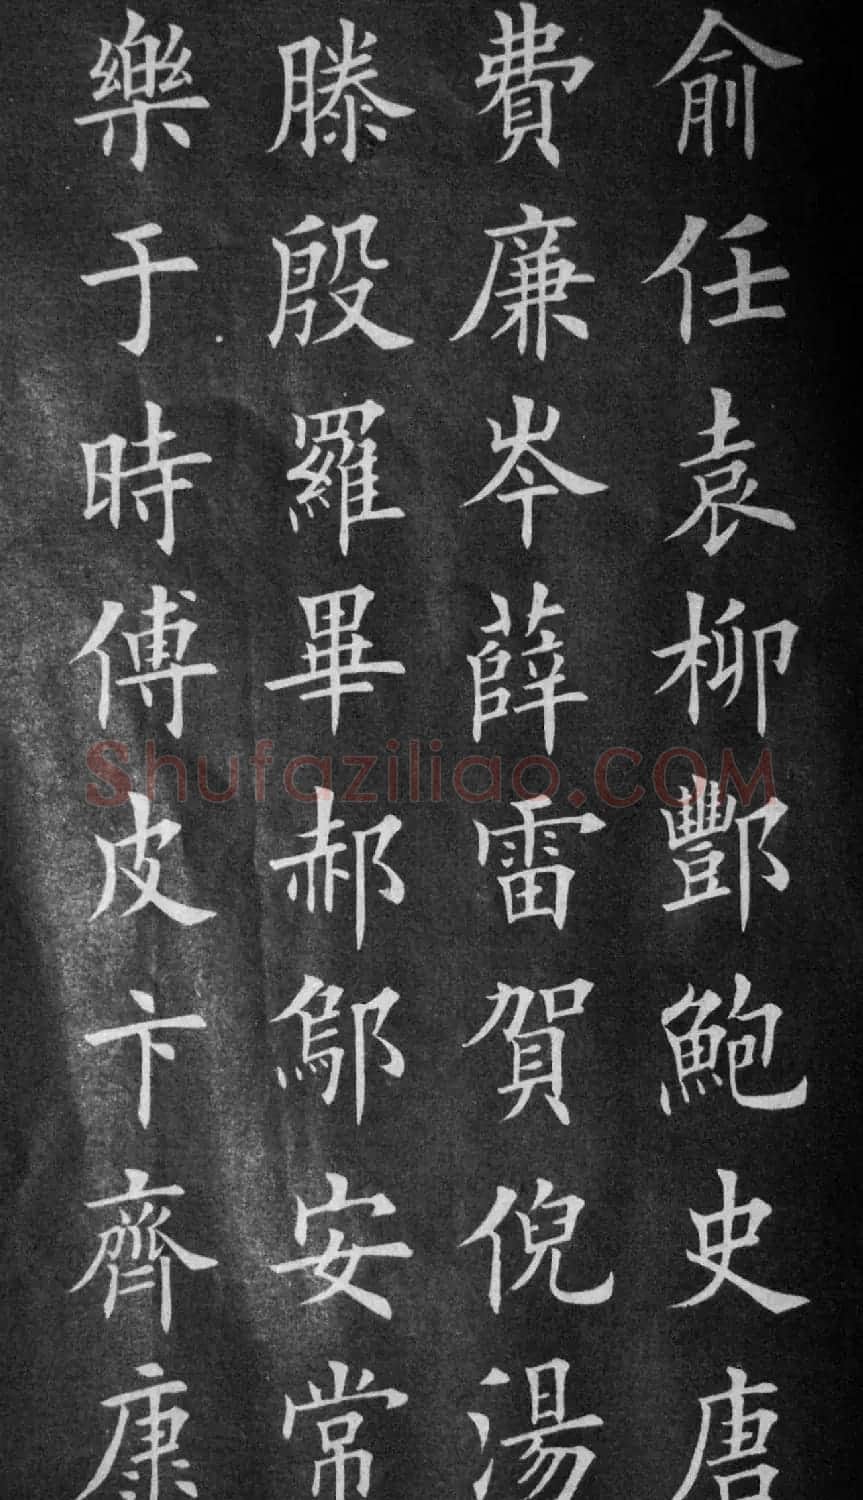 俞任袁柳酆鮑史唐
費廉岑薛雷賀倪湯
滕殷羅畢郝鄔安常
樂于時傅皮卞齊康
Shufaziliao.COM